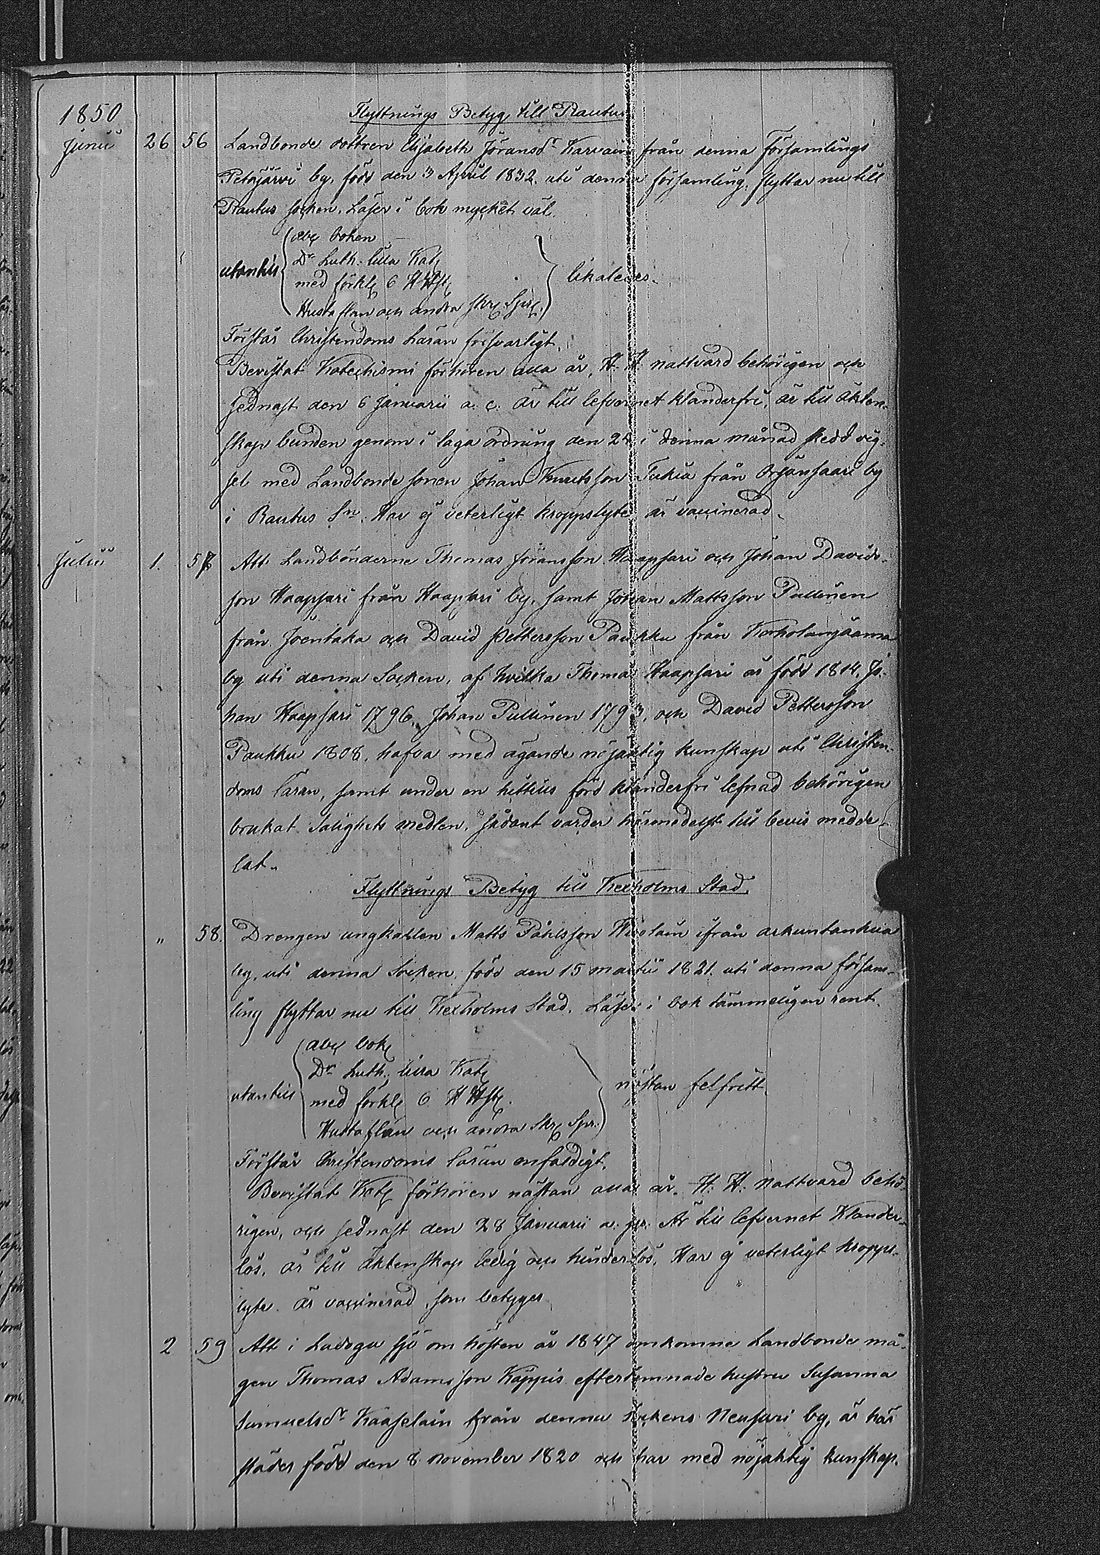 1850
Flyttnings Betyg till Rautus
Junii 26 56 Landbonde dottren Elisabeth Göransdr Karvain från denna Församlings
Petäjärvi by, född den 3 April 1832. uti denna församling, flyttar nu till
Rautus socken. Läser i bok mycket väl.
abc boken
Dr Luth. lilla Kat.
utantill med förkl. o H Hfl. likaledes.
Hustaflan och andra skr. Spr.
Förstår Christendoms Läran försvarligt.
Bevistat Katechismi förhören alla år, H. H. nattvard behörigen och
sednast den 6 Januarii a. c. är till lefvernet klanderfri, är till äkten-
skap bunden genom i laga ordning den 24 i denna månad skedd vig-
sel med Landbonde sonen Johan Henriksson Tukia från Orjansaari by
i Rautus Sn. Har ej veterligt kroppslyte är vaccinerad.
Julii 1. 57 Att Landbönderna Thomas Göransson Haapsari och Johan Davids-
son Haapsari från Haapsari by, samt Johan Mattsson Pullinen
från Joentaka och David Pettersson Paukku från Korholanjaama
by uti denna Socken, af hvilka Thomas Haapsari är född 1814, Jo-
han Haapsari 1796, Johan Pullinen 1793, och David Pettersson
Paukku 1808, hafva med ägande nöjaktig kunskap uti Christen-
doms läran, samt under en hittills förd klanderfri lefnad behörigen
brukat Salighets medlen, sådant varder härmedelst till bevis medde-
lat.
Flyttnings Betyg till Kexholms Stad.
" 58. Drengen ungkarlen Matts Påhlsson ifrån
by, uti denna Socken, född den 15 martii 1821. uti denna försam-
ling flyttar nu till Kexholms Stad. Läser i bok tämmeligen rent.
abc bok
Dr Luth. lilla Kat.
utantill med förkl. o. H Hfl. nästan felfritt.
Hustaflan och andra Skr. Spr.
Förstår Christendoms läran enfaldigt.
Bevistat Kat. förhören nästan alla år. H. H. nattvard behö-
rigen, och sednast den 28 Januarii a. pr. Är till lefvernet Klander-
lös, är till äktenskap ledig och hinderlös, Har ej veterligt kropps-
lyte. är vaccinerad, som betygas
2 59 Att i Ladoga sjö om hösten år 1847 omkomne Landbonde må-
gen Thomas Adamsson Käppis efterlemnade hustru Susanna
Samuelsdr Kaaselain från denna Sockens Neusari by, är här
städes född den 8 November 1820 och har med nöjaktig kunskap